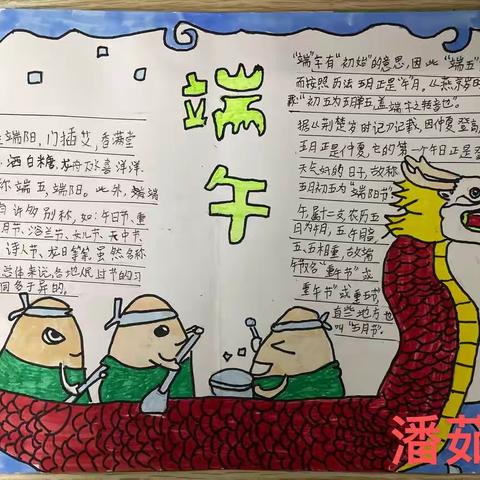 端午
端阳，门插艾，香满堂
洒白米糖，龙舟下水喜洋洋。
称端五，端阳。此外，端端
有许多别称，如：午日节、重
月节、浴兰节、女儿节、天中节、
诗人节、龙日等等。虽然名称
总体来说，各地人民过节的习
同多于异的。
"端"字有"初始"的意思，因此"端五"
而按照历法五月正是"午"月，
"初五为五月单五，盖端字之转音也"。
据《荆楚岁时记》记载，因仲夏登高
五月正是仲夏，它的第一个午日正是登
天气的日子，故称
五月初五为"端阳节"
午，属十二支，农历五
日为午月，五、午同音，
五、五相重，故端
午节又名"重午节"或
重午节"或"重五节"
有些地方也
叫"五月节"。
潘茹